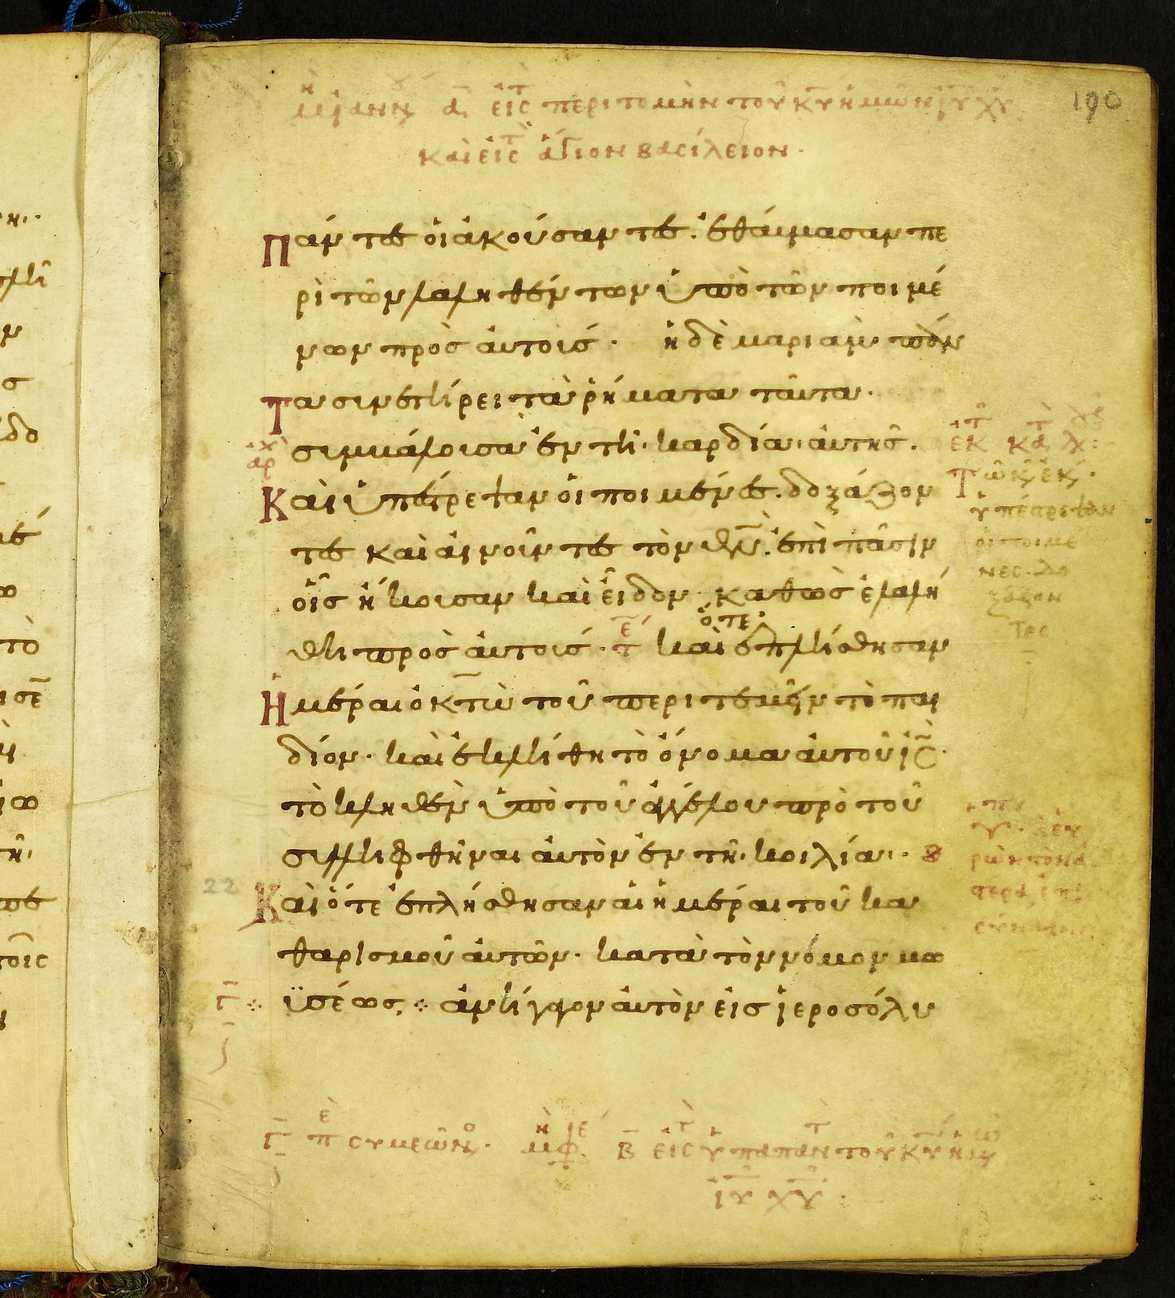 190
μ ἰανν α εἰς τ περιτομὴν τοῦ κυ ἡμῶν ιυ χυ
καὶ εἰς τ ἅγιον βασίλειον
Πάντες οἱ ἀκούσαντες. ἐθαύμασαν πε
ρὶ τῶν λαληθέντων ὑπὸ τῶν ποιμέ
νων πρὸς αὐτοις· ἡ δὲ μαριαμ πάν
Τα συνετήρει τὰ ῥήματα ταῦτα·
συμβάλουσα ἐν τῆ καρδία αὐτης.
Καὶ ὑπέστρεψαν οἱ ποιμένες. δοξάζον
τες καὶ αἰνοῦντες τὸν θν. ἐπὶ πᾶσιν
οἷς ἤκουσαν καὶ εἶδον. καθὼς ἐλαλή
θη πρὸς αὐτοις· ὅτε καὶ ἐπλήσθησαν
Ἡμέραι ὀκτὼ τοῦ περιτεμεῖν τὸ παι
δίον· καὶ ἐκλήθη τὸ ὄνομα αὐτοῦ ις·
τὸ κληθὲν ὑπὸ τοῦ ἀγγέλου πρὸ τοῦ
συλληφθῆναι αὐτὸν ἐν τῆ κοιλία·
22
Καὶ ὅτε ἐπλήσθησαν αἱ ἡμέραι τοῦ κα
θαρισμοῦ αὐτῶν· κατὰ τὸν νόμον μω
ϋσέως ἀνήγαγον αὐτὸν εἰς ἱεροσόλυ
ὑπέστρεψαν
οἱ ποιμέ
νες δο
ξάζον
τες
Γ π συμεὼν μ φε Β εἰς τ ὑπαπαντ τοῦ κυ ἡμ
ιυ χυ